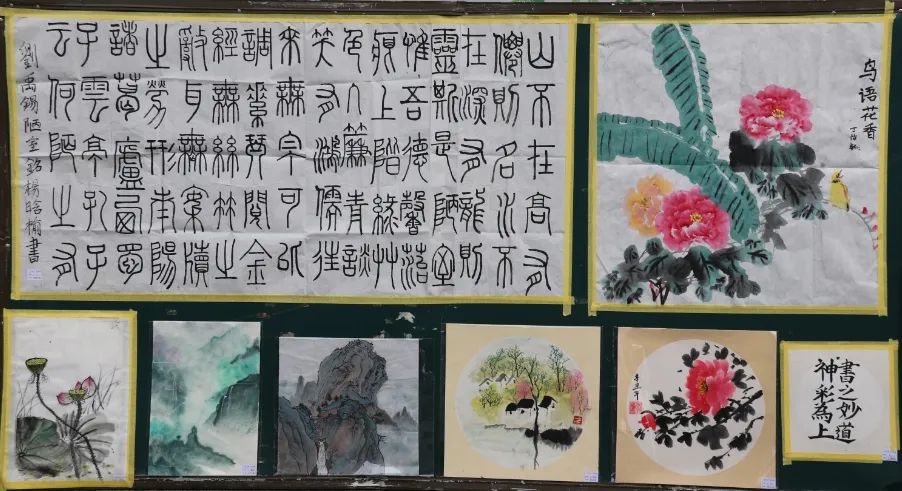 山不在高有
僊則名水不
在深有龍則
靈斯是陋室
惟吾德馨苔
痕上階綠艸
色入簾青談
笑有鴻儒往
來無白丁可以
調素琴閱金
經無絲竹之
亂耳無案牘
之勞形南陽
諸葛廬西蜀
子雲亭孔子
云何陋之有
劉禹錫陋室銘楊晗榆書
鸟语花香
辛丑年
書之妙道
神彩為上